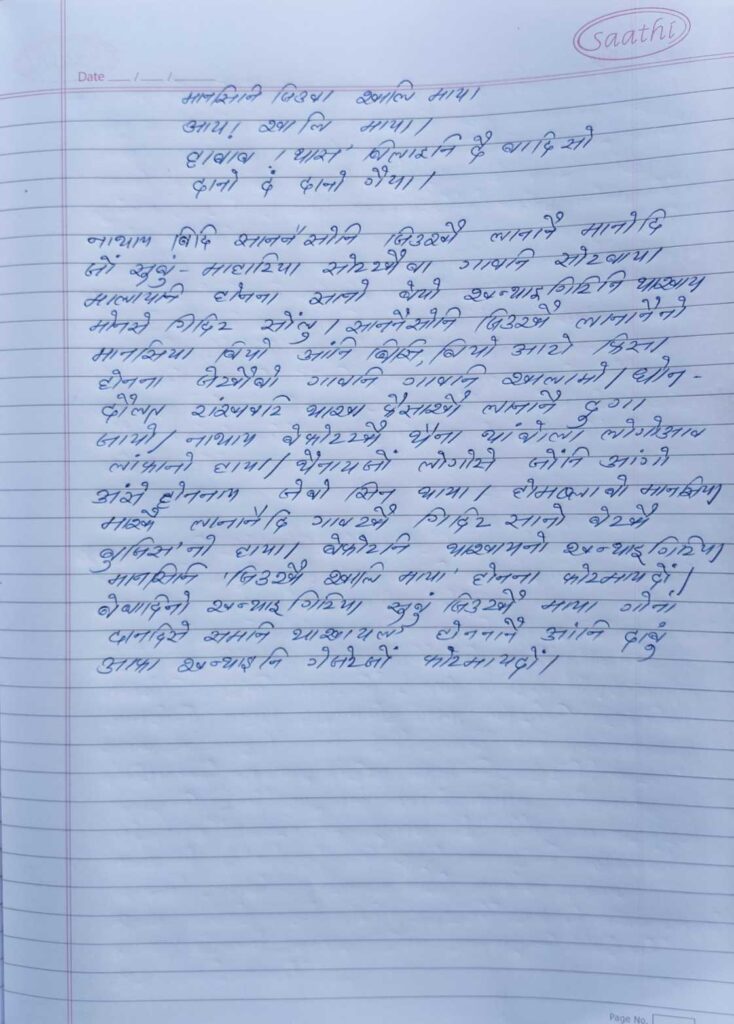 saathi
Date __/__/____
मानसिनि जिउवा खालि माया।
आय! खालि माया।
हाबाब। थासे बिलाइनि दै बादि सो
दानो दं दानो गैया।
नाथाय बिदि सानसे सोनि जिउखौ लानानै मानोदि
जों खुबुं- माहारिया सोरखौबा गावनि सोरबाया।
मालायनि होनना सानो बेयो खन्थाइगिरिनि थाखाय
मोनसे गिदिर सोंलु। सानसेसोनि जिउखौ लानानैनो
मानसिया बियो आंनि बिसि, बियो आरो फिसा
होनना जेखौबो गावनि गावनि खालामो। धोन-
दौलत रांखवरि थाखा पैसाखौ लानानै दुगा
जायो। नाथाय बेफोरखौ थैना थांबोला लोगोआव
लांफानो हाया। थैनायजों लोगोसे जोंनि आंगो
अंसे होननाय जेबो सिन थाया। होमबला बो मानसिया
माखौ लानानैदि गावखौ गिदिर सानो बेखौ
बुजिनो हाया। बेफोरनि थाखायनो खन्थाइगिरिया
मानसिनि 'जिउखौ खालि माया' होनना फोरमायदों।
बेबादिनो खन्थाइगिरिया खुबुं जिउखौ माया गोनां
दानदिसे समनि थाखायल' होननानै आंनि दाबुं
आफा खन्थाइनि गेजेरजों फोरमायदों।
Page No.